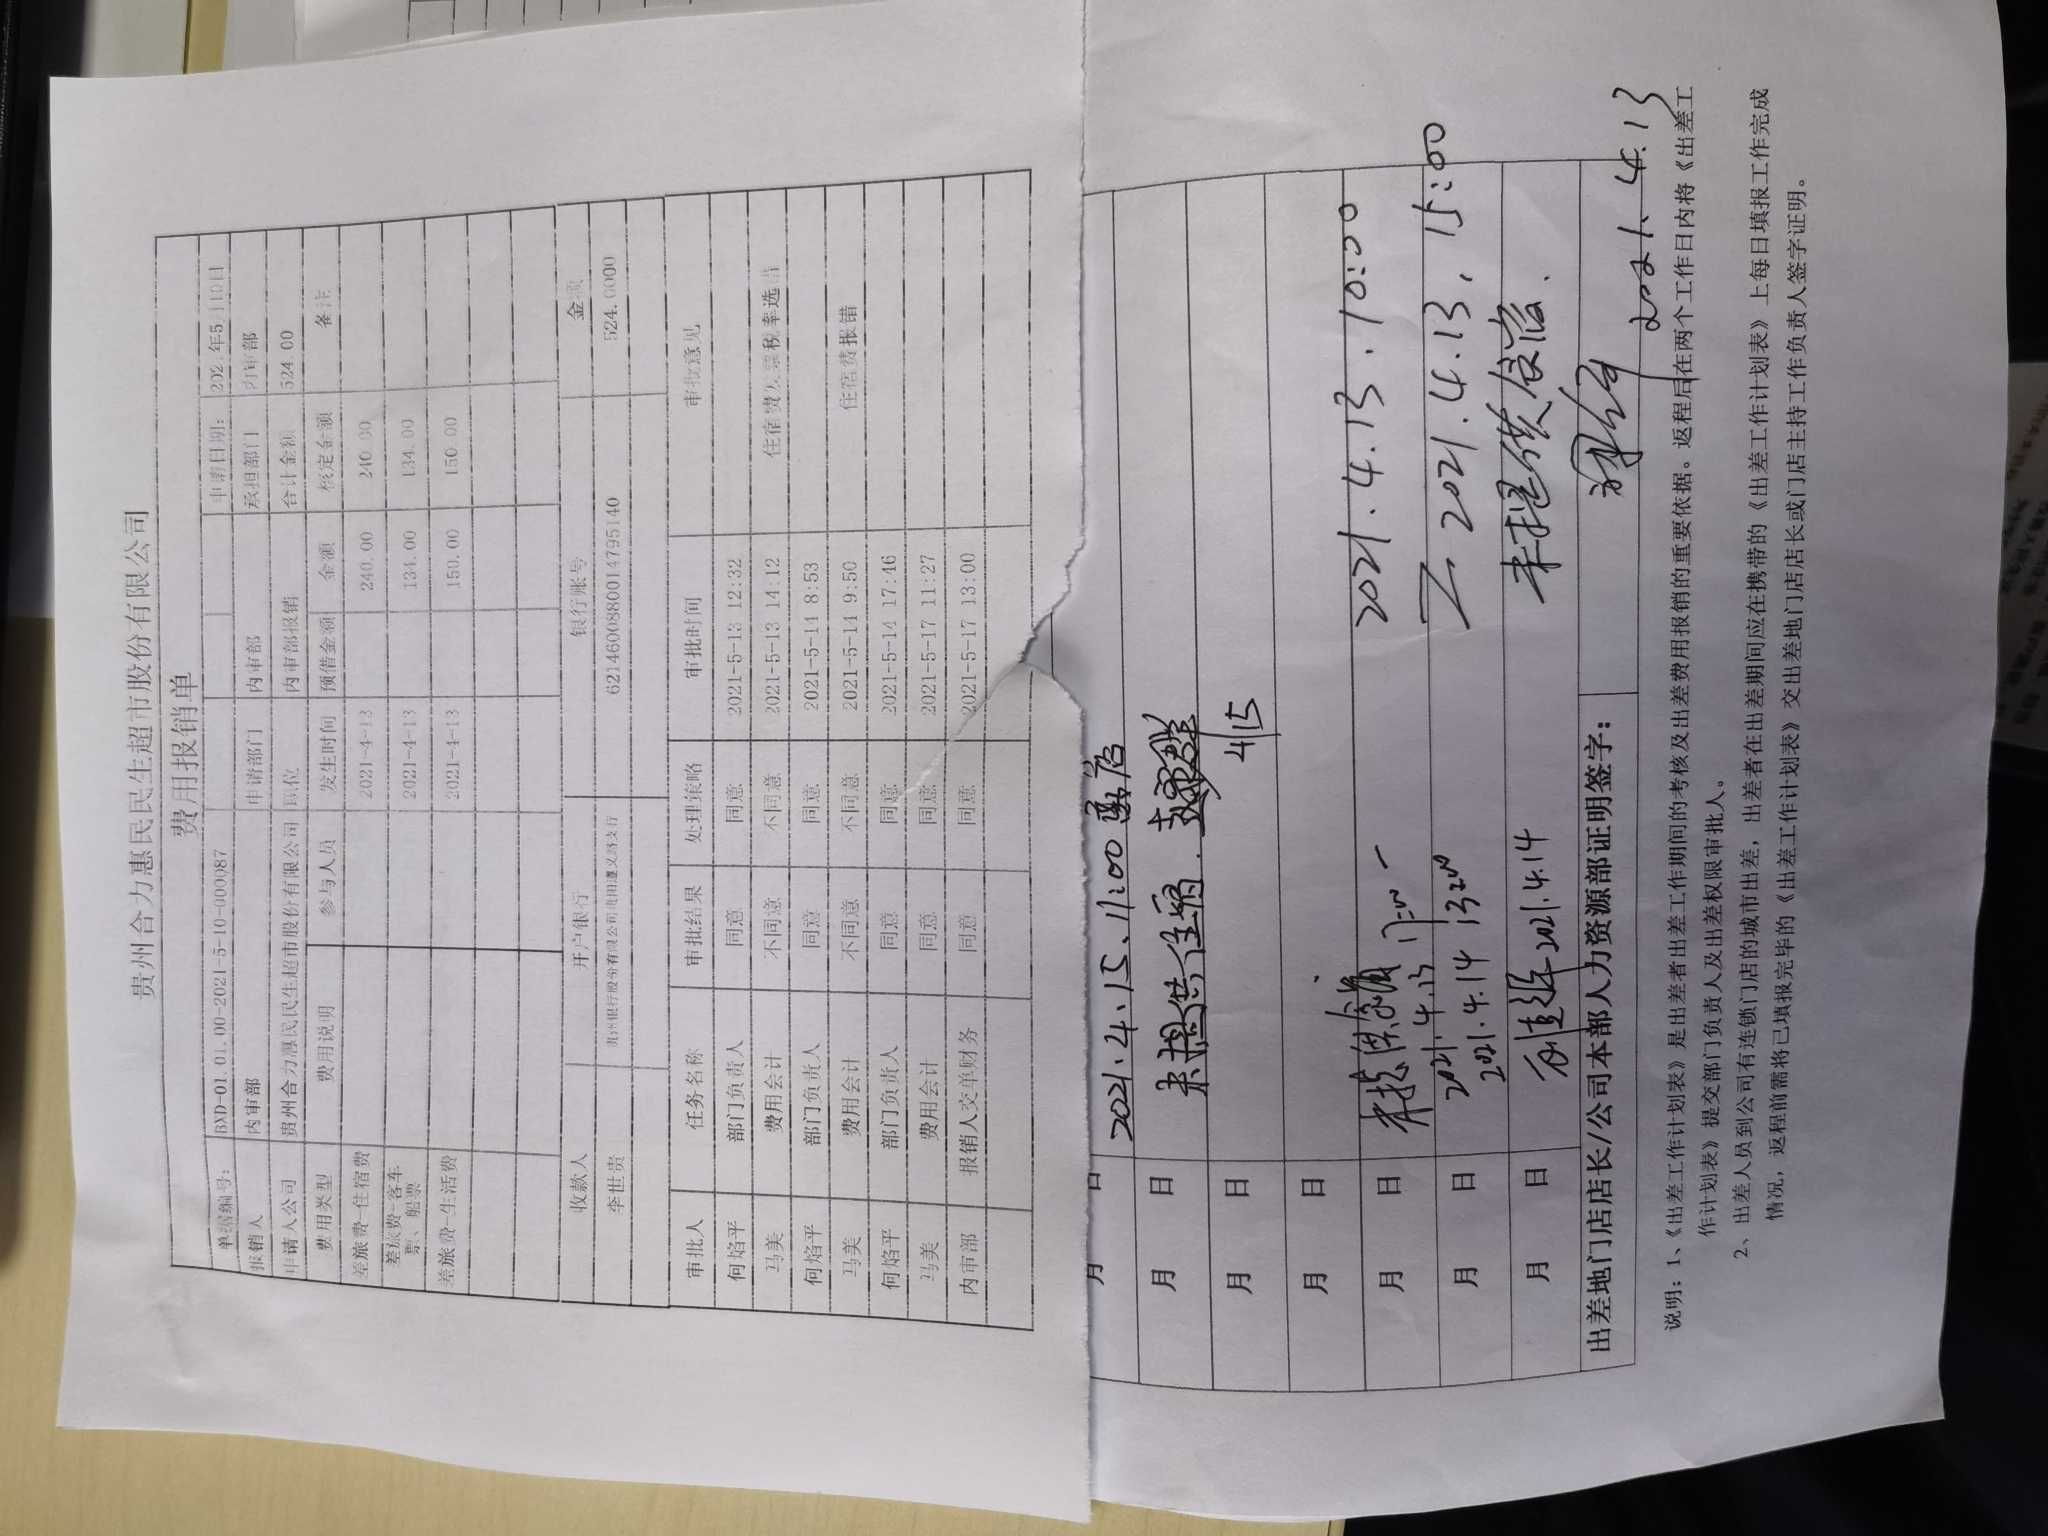 贵州合力惠民民生超市股份有限公司
费用报销单
单据编号: BXD-01.01.00-2021-5-10-000087 申请日期:
报销人 内审部 申请部门 内审部 承担部门 内审部
申请人公司 贵州合力惠民民生超市股份有限公司 职位 内审部报销 合计金额 524.00
费用类型 费用说明 参与人员 发生时间 预借金额 金额 核定金额 备注
差旅费-住宿费 2021-4-13 240.00 240.00
差旅费-客车票、船票 2021-4-13 134.00 134.00
差旅费-生活费 2021-4-13 150.00 150.00
收款人 开户银行 银行账号 金额
李世贵 贵州银行股份有限公司贵阳遵义路支行 6214600880014795140 524.0000
审批人 任务名称 审批结果 处理策略 审批时间 审批意见
何焰平 部门负责人 同意 同意 2021-5-13 12:32
马美 费用会计 不同意 不同意 2021-5-13 14:12 住宿费发票税率选错
何焰平 部门负责人 同意 同意 2021-5-14 8:53
马美 费用会计 不同意 不同意 2021-5-14 9:50 住宿费报错
何焰平 部门负责人 同意 同意 2021-5-14 17:46
马美 费用会计 同意 同意 2021-5-17 11:27
内审部 报销人交单财务 同意 同意 2021-5-17 13:00
月 日 2021.4.15.11:00 离店
月 日 未提供住宿.
月 日 4/15
月 日
月 日 2021.4.13 17:00 2021.4.13.10:00
月 日 2021.4.14 13:00 2021.4.13, 15:00
月 日 2021.4.14 未提供食宿.
出差地门店店长/公司本部人力资源部证明签字: 2021.4.13
说明: 1、《出差工作计划表》是出差者出差工作期间的考核及出差费用报销的重要依据。返程后在两个工作日内将《出差工
作计划表》提交部门负责人及出差权限审批人。
2、出差人员到公司有连锁门店的城市出差, 出差者在出差期间应在携带的《出差工作计划表》上每日填报工作完成
情况, 返程前需将已填报完毕的《出差工作计划表》交出差地门店店长或门店主持工作负责人签字证明。